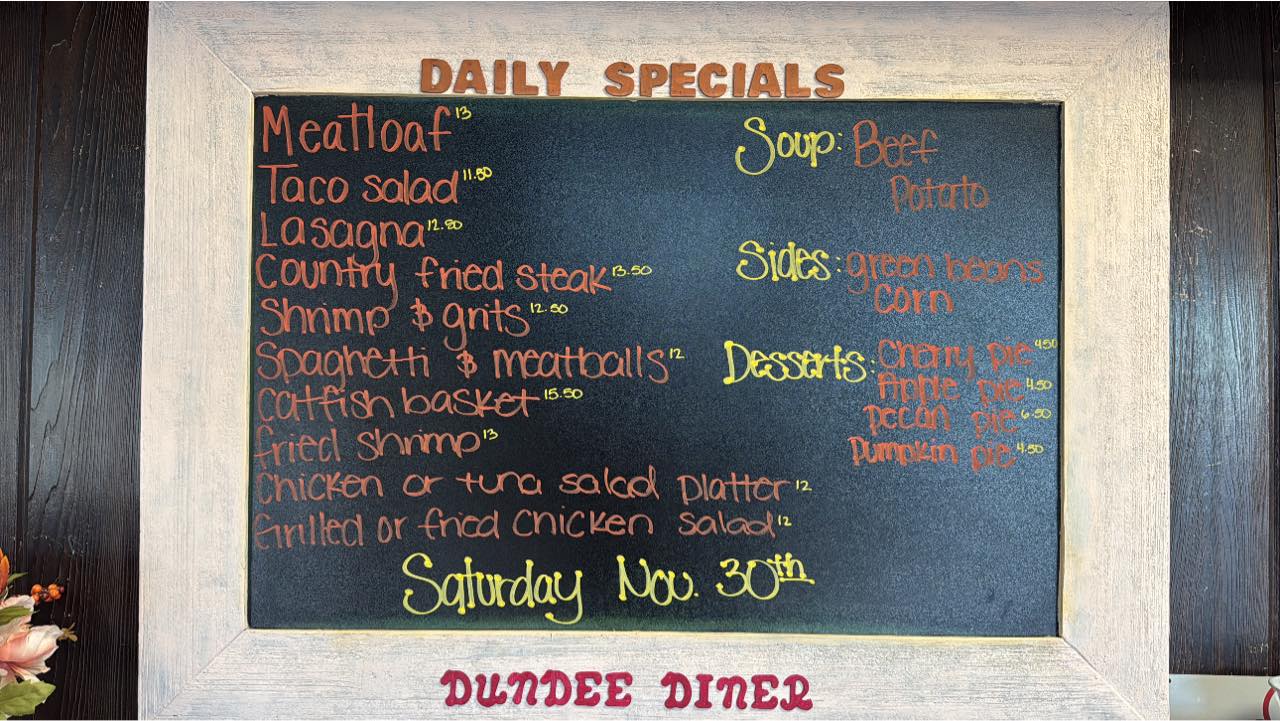 DAILY SPECIALS
Meatloaf 13
Taco salad 11.50
Lasagna 12.50
Country fried steak 13.50
Shrimp & grits 12.50
Spaghetti & meatballs 12
Catfish basket 15.50
fried shrimp 13
Chicken or tuna salad platter 12
Grilled or fried chicken salad 12
Soup: Beef
Potato
Sides: green beans
corn
Desserts: Cherry pie 4.50
Apple pie 4.50
Pecan pie 6.50
Pumpkin pie 4.50
Saturday Nov. 30th
DUNDEE DINER